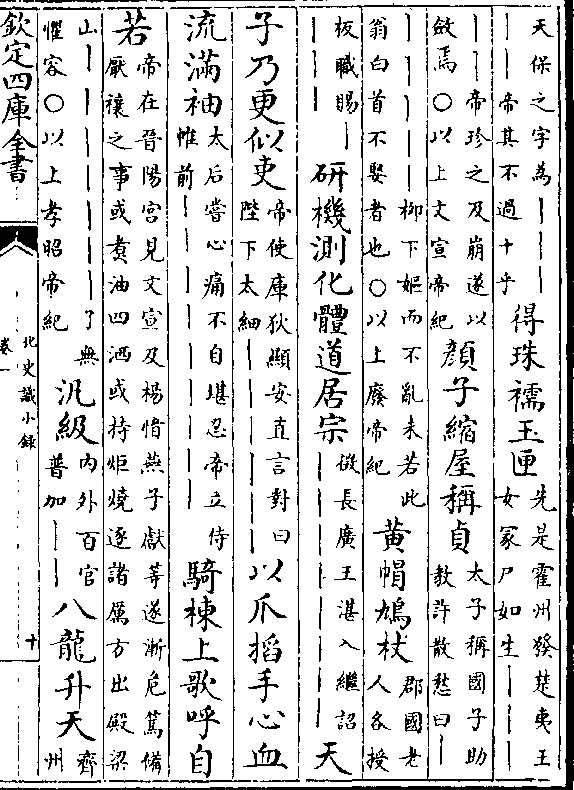 天保之字為｜｜｜｜
｜｜帝其不過十乎
得珠襦玉匣
先是霍州發楚夷王
女冢尸如生｜｜｜
｜｜帝珍之及崩遂以
斂焉○以上文宣帝紀
顔子縮屋稱貞
太子稱國子助
教許散愁曰｜
｜｜｜｜｜柳下嫗而不亂未若此
翁白首不娶者也○以上廢帝紀
黄帽鳩杖
郡國老
人各授
板職賜｜
｜｜｜
研機測化體道居宗
徵長廣王湛入繼詔
｜｜｜｜｜｜｜｜
天
子乃更似吏
帝使庫狄顯安直言對曰
陛下太細｜｜｜｜｜｜
以爪搯手心血
流滿袖
太后嘗心痛不自堪忍帝立侍
帷前｜｜｜｜｜｜｜｜
騎棟上歌呼自
若
帝在晉陽宫見文宣及楊愔燕子獻等遂漸危篤備
厭禳之事或煑油四洒或持炬燒逐諸厲方出殿梁
山｜｜｜｜｜｜｜了無
懼容○以上孝昭帝紀
汎級
内外百官
普加｜｜
八龍升天
齊
州
欽定四庫全書
北史識小録
卷一
十